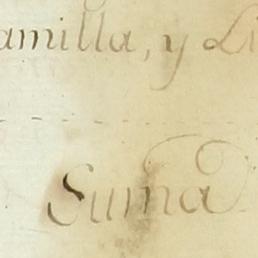 amilla, y Li
Suma